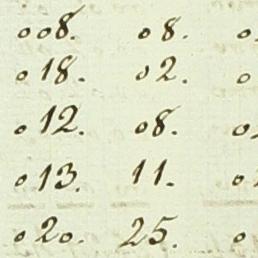 008. 08. 0
018. 02. 0
012. 08. 0
013. 11. 0
020. 25. 0